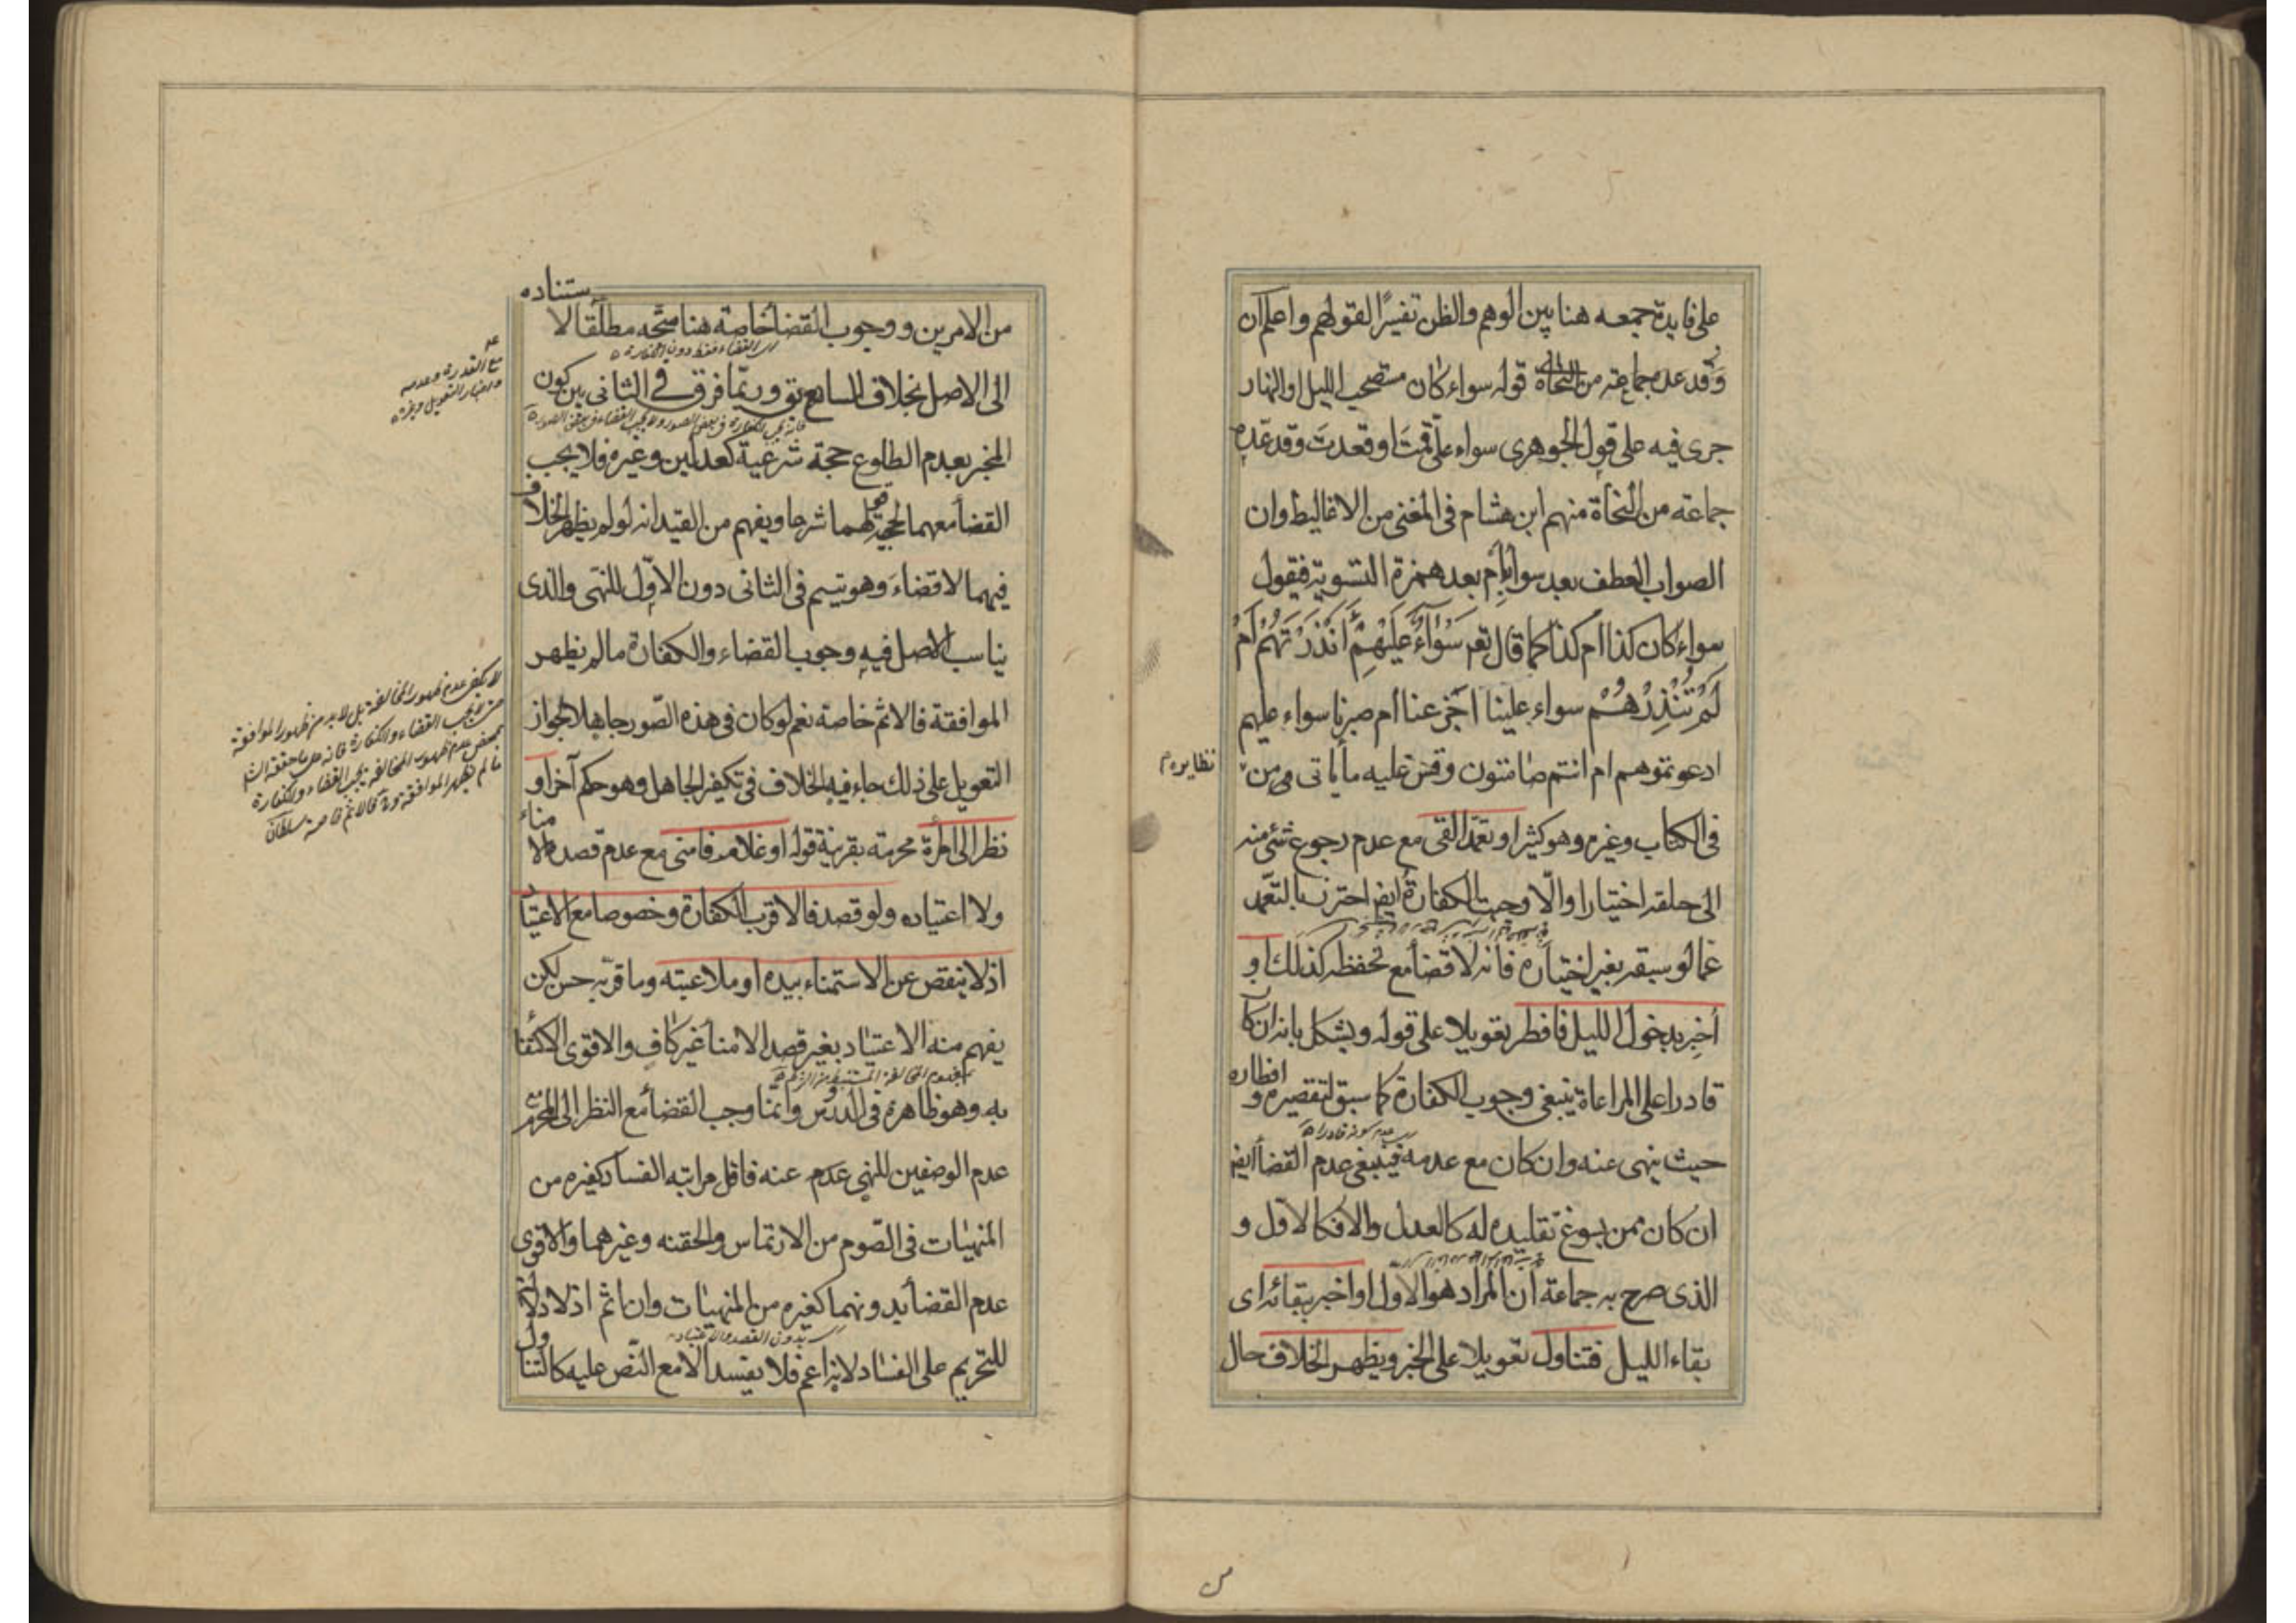 على فايدة جمعه هنا بين الوهم والظن تفسيرًا لقولهم واعلم ان
وقد عده جماعة من النحاة قوله سواء كان مستصحب الليل او النهار
جرى فيه على قول الجوهرى سواء علىّ قمتَ او قعدتَ وقد عدّه
جماعة من النحاة منهم ابن هشام فى المغنى من الاغاليط وان
الصواب العطف بعد سواء بام بعد همزة التسوية فيقول
سواء كان كذا ام كذا كما قال تعم سَوَآءٌ عَلَيْهِمْ أَنْذَرْتَهُمْ أَمْ
لَمْ تُنْذِرْهُمْ سواء علينا اجزعنا ام صبرنا سواء عليهم
ادعوتموهم ام انتم صامتون وقس عليه ما ياتى من
نظايره
فى الكتاب وغيره وهو كثير او تعمّد القى مع عدم رجوع شئ منه
الى حلقه اختيارا والّا وجبت الكفارة ايض احترز بالتعمّد
عما لو سبقه بغير اختياره فانه لا قضاء مع تحفظه كذلك او
أخبر بدخول الليل فافطر تعويلا على قوله ويشكل بانه ان كا
قادرا على المراعاة ينبغى وجوب الكفارة كما سبق لتقصيره و افطاره
اى عدم كونه قادرا
حيث ينهى عنه وان كان مع عدمه فينبغى عدم القضاء ايض
ان كان ممن يسوغ تقليده له كالعدل والا فكالاول و
الذى صرح به جماعة ان المراد هو الاول او اخبر ببقائه اى
بقاء الليل فتناول تعويلا على الخبر ويظهر الخلاف حال
من
من الامرين ووجوب القضاء خاصة هنا متّجه مطلقا لا ستناده
اى القضاء فقط دون الكفارة
مع القدرة وعدمه
الى الاصل بخلاف السابع وربّما فرق فى الثانى بين كون
المخبر بعدم الطلوع حجة شرعية كعدلين وغيره فلا يجب
القضاء معهما لحجية قولهما شرعا ويفهم من القيد انه لو لم يظهر الخلاف
فيهما لا قضاء وهو يتم فى الثانى دون الاوّل للنهى والذى
يناسب الاصل فيه وجوب القضاء والكفارة ما لم يظهر
الموافقة فالاثم خاصة نعم لو كان فى هذه الصّور جاهلا بجواز
التعويل على ذلك جاء فيه الخلاف فى تكفير الجاهل وهو حكم آخر او
نظر الى امرأة محرمة بقرينة قوله او غلام فامنى مع عدم قصده الامناء
ولا اعتياده ولو قصد فالاقرب الكفارة وخصوصا مع الاعتياد
اذ لا ينقص عن الاستمناء بيده او ملاعبته وما قرّبه حسن لكن
يفهم منه الاعتياد بغير قصد الامناء غير كافٍ والاقوى الاكتفا
به وهو ظاهره فى الدروس وانما وجب القضاء مع النظر الى المحرم مع
عدم الوصفين للنهى عنه فاقل مراتبه الفساد كغيره من
المنهيات فى الصّوم من الارتماس والحقنه وغيرهما والاقوى
عدم القضاء بدونهما كغيره من المنهيات وان اثم اذ لا دلالة
بدون القصد والاعتياد
للتحريم على الفساد لانه اعم فلا يفسد الا مع النّص عليه كالتناول
لا يكفى عدم ظهور المخالفة بل لا بد من ظهور الموافقة
بمحض عدم ظهور المخالفة يجب القضاء والكفارة
ما لم يظهر الموافقة والا فالاثم خاصة سلطان